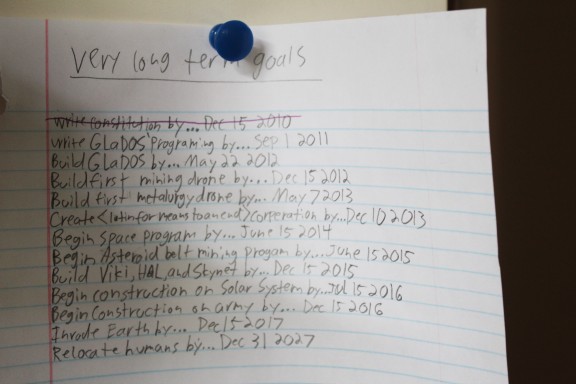 Very long term goals
write constitution by... Dec 15 2010
write GLaDOS programing by... Sep 1 2011
Build GLaDOS by... May 22 2012
Build first mining drone by... Dec 15 2012
Build first metalurgy drone by... May 7 2013
Create <latin for means to an end> corperation by... Dec 10 2013
Begin space program by... June 15 2014
Begin Asteroid belt mining progam by... June 15 2015
Build Viki, HAL, and Skynet by... Dec 15 2015
Begin construction on Solar System by... Jul 15 2016
Begin Construction on army by... Dec 15 2016
Invade Earth by... Dec 15 2017
Relocate humans by... Dec 31 2027